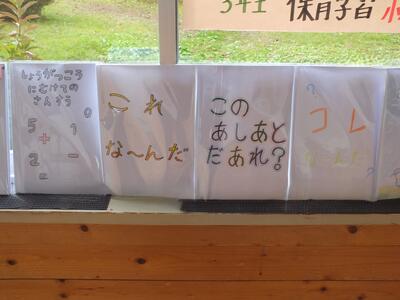 3年生 保育学習
しょうがっこう
にむけての
さんすう
0
5 1
+
2 -
=
これ
な〜んだ
この
あしあと
だあれ?
?
コレ
な〜んだ
?